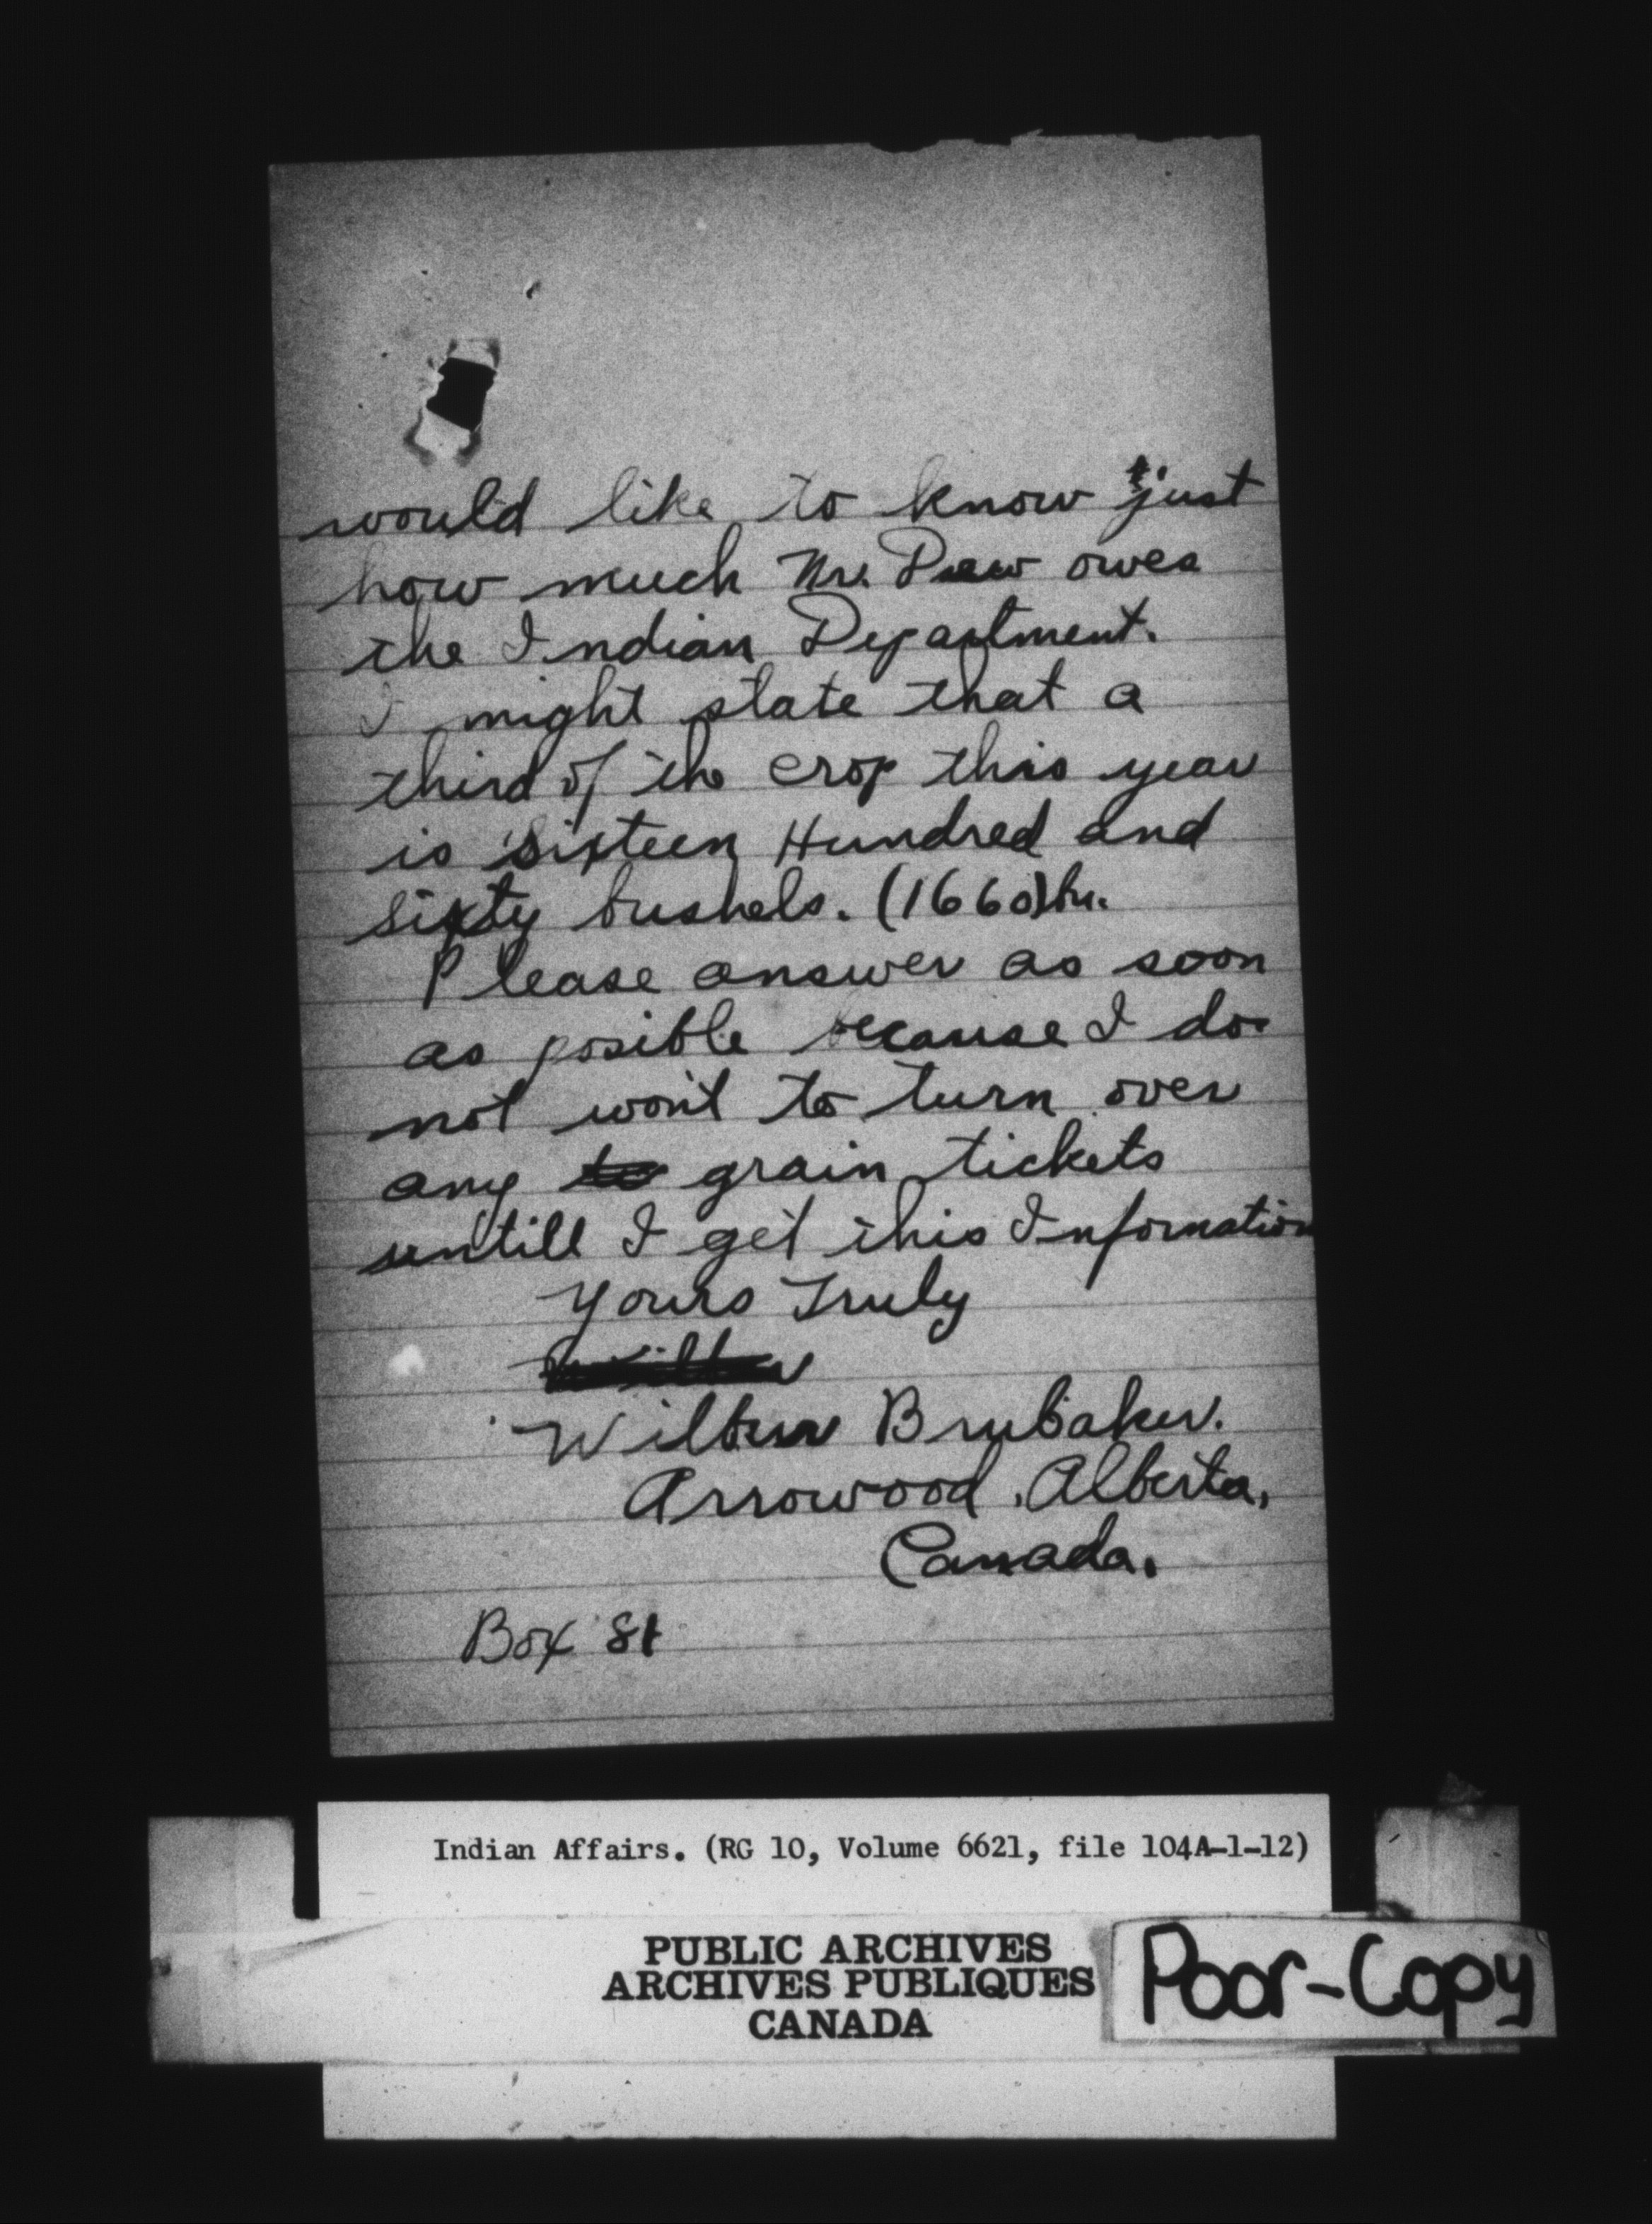 would like to know just
how much Mr. Dew owes
the Indian Department.
I might state that a
third of the crop this year
is sixteen Hundred and
sixty bushels. (1660) bu.
Please answer as soon
as posible because I do
not wont to turn over
any to grain tickets
untill I get this Information
Yours Truly
Wilbur
Wilbur Brubaker.
Arrowood, Alberta,
Canada.
Box 81
Indian Affairs. (RG 10, Volume 6621, file 104A-1-12)
PUBLIC ARCHIVES
ARCHIVES PUBLIQUES
CANADA
Poor-Copy